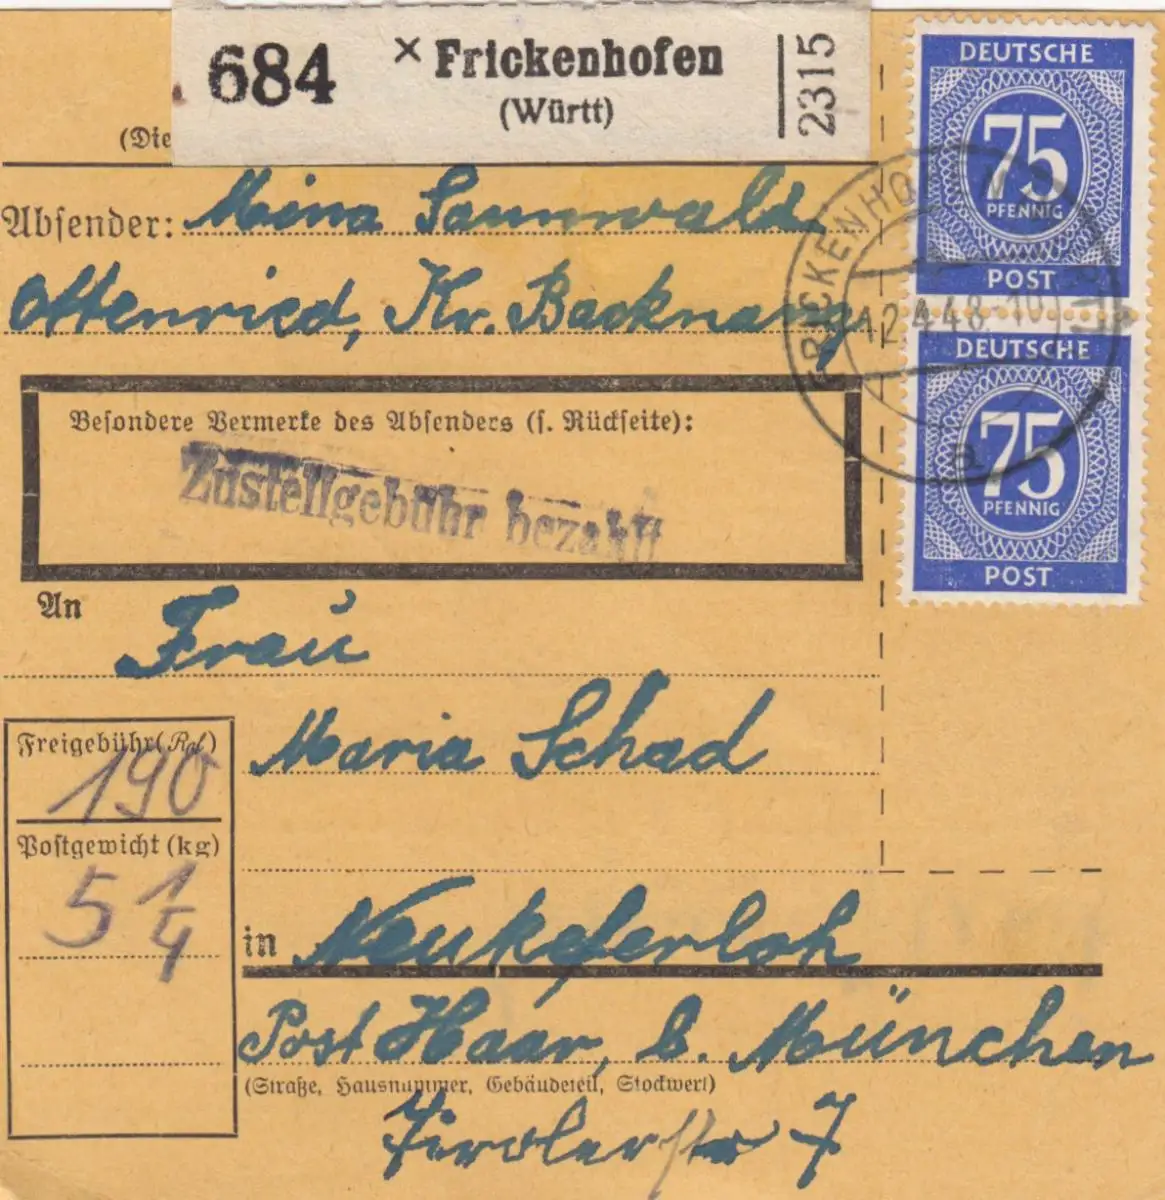 684 × Frickenhofen
(Württ)
2315
(Die
Absender: Mina Sannwald
Ottenried, Kr. Backnang
DEUTSCHE
75
PFENNIG
POST
FRICKENHOFEN
12.4.48.-10
a
DEUTSCHE
75
PFENNIG
POST
Besondere Vermerke des Absenders (s. Rückseite):
Zustellgebühr bezahlt
An Frau
Maria Schad
Freigebühr (Rpf)
190
Postgewicht (kg)
5 1/4
in Neukeferloh
Post Haar, b. München
(Straße, Hausnummer, Gebäudeteil, Stockwerk)
Tirolerstr 7